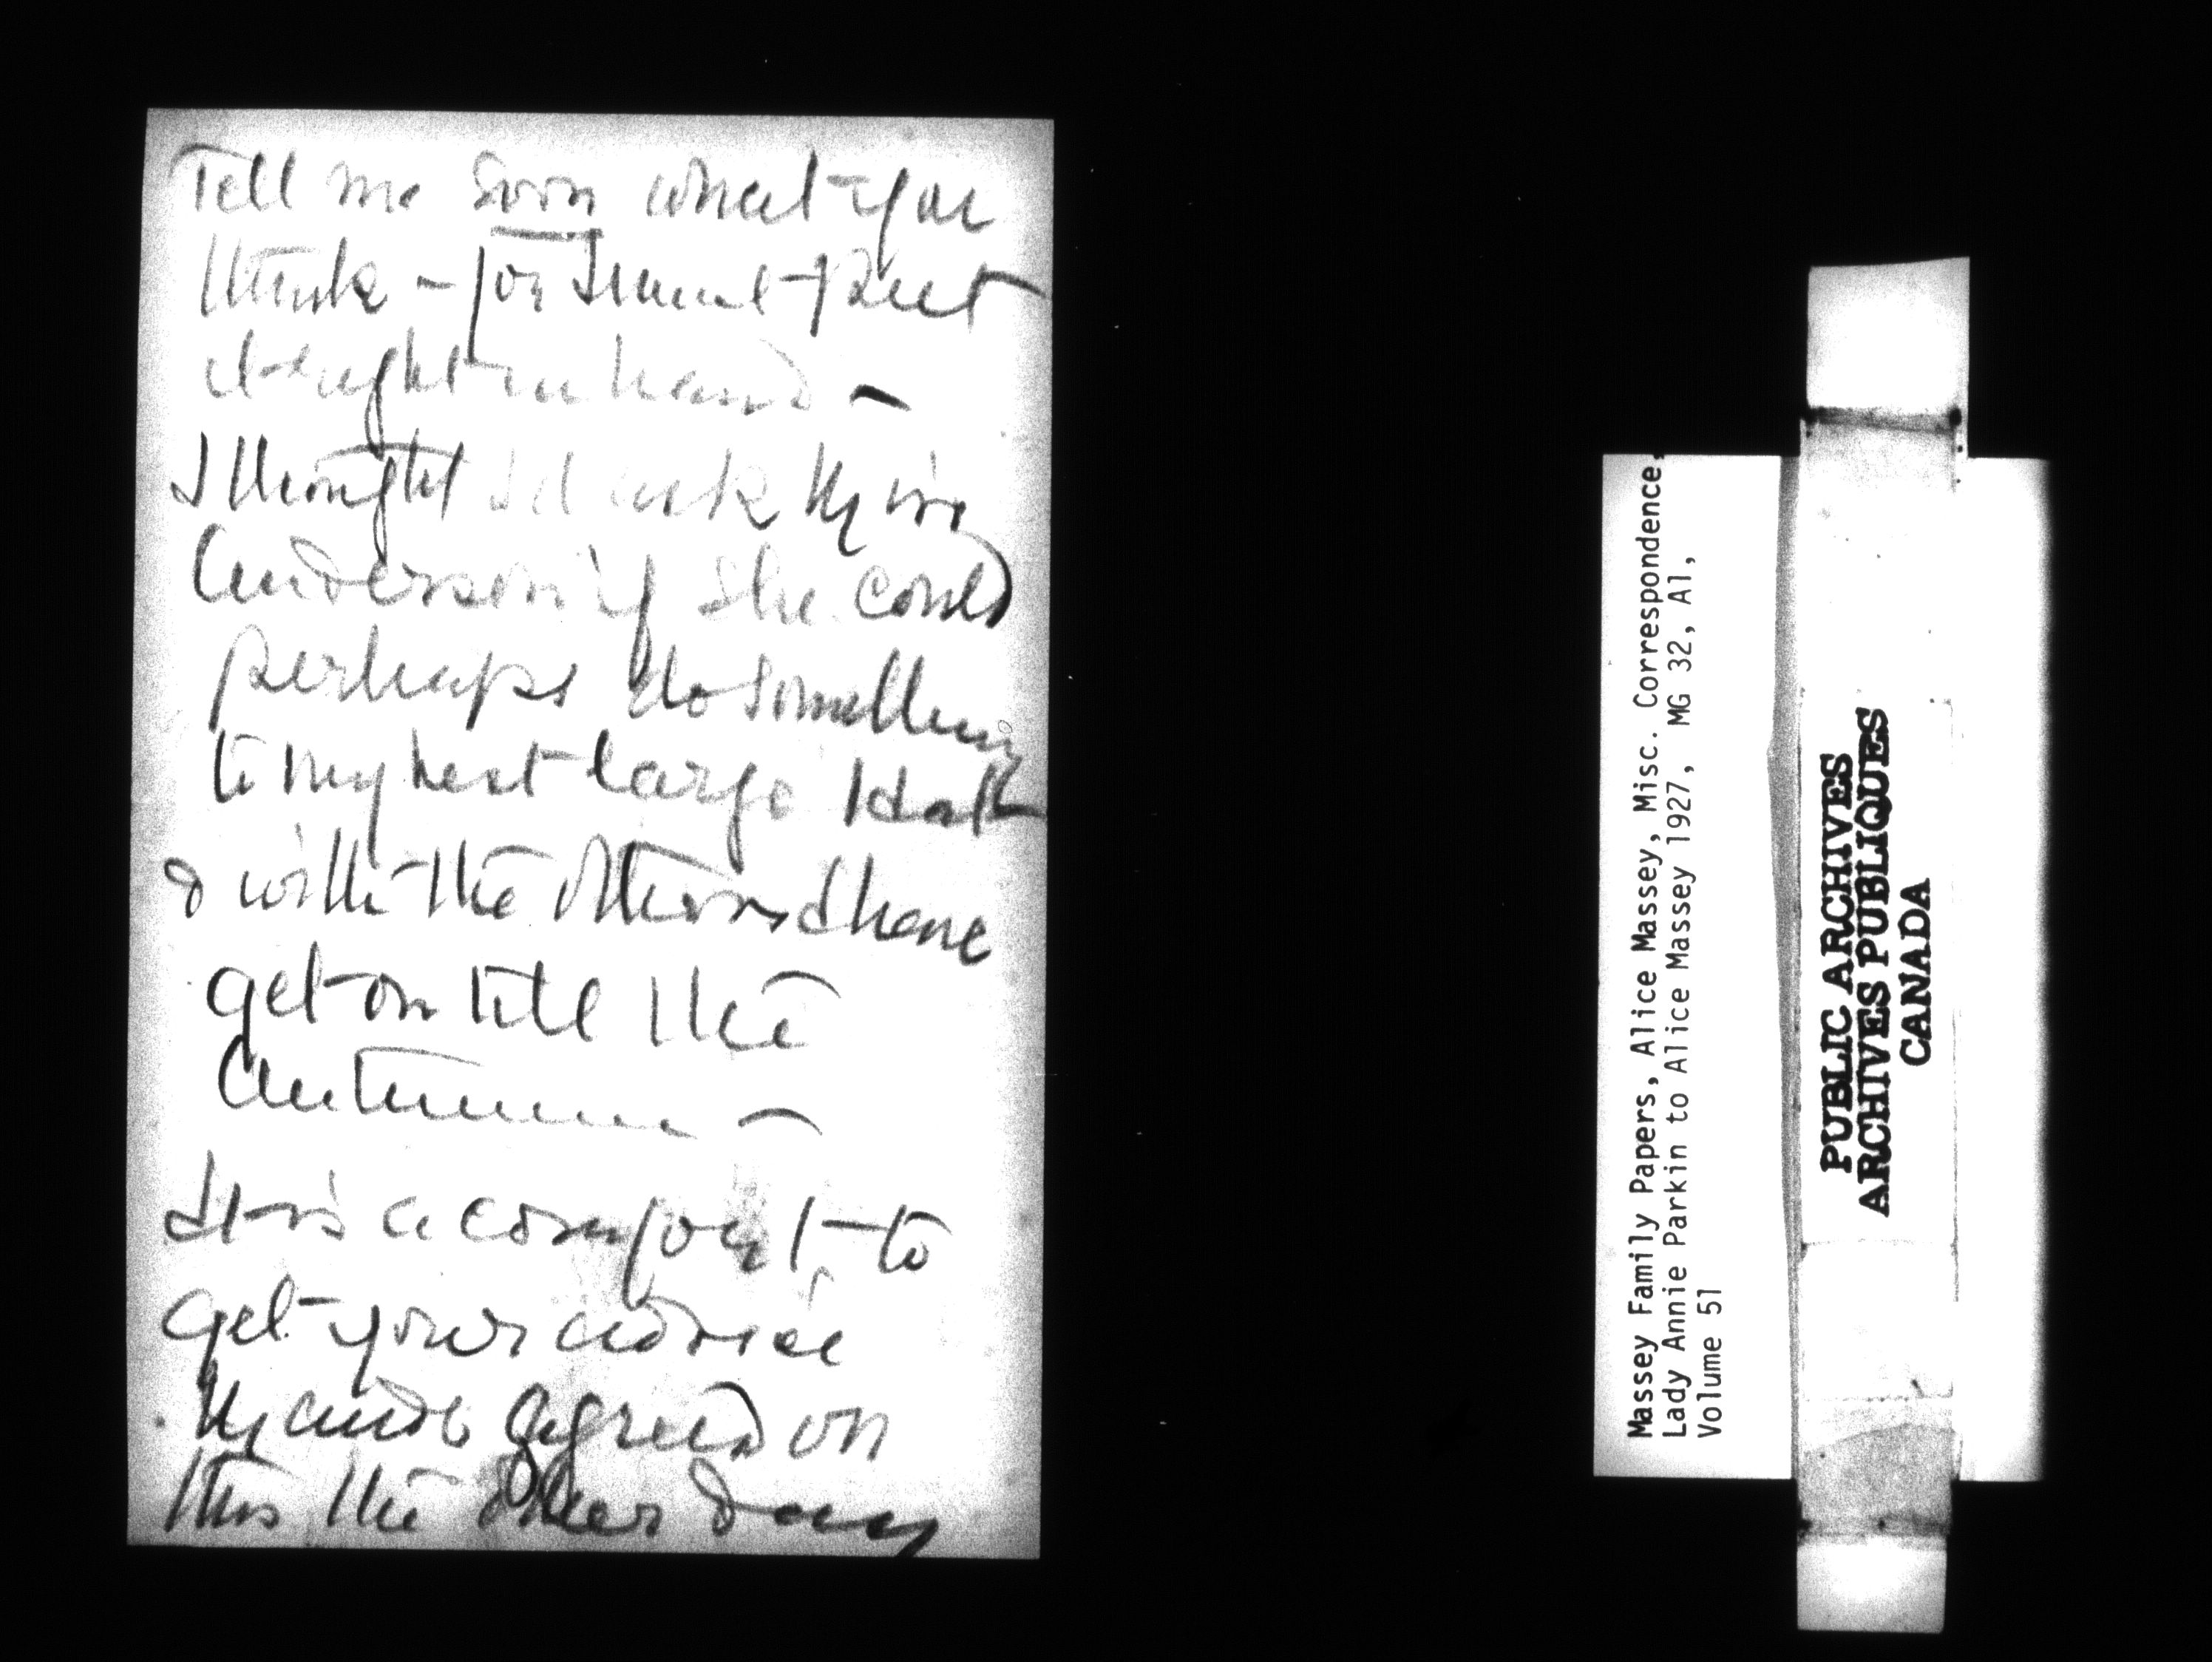 Tell me soon what you
think - for I must put
it right in hand -
I thought I'd ask Miss
Anderson if she could
perhaps do something
to my best large Hat
& with the others I have
get on till the
Autumn -
It is a comfort to
get your advice
Maude agreed on
this the other day
Massey Family Papers, Alice Massey, Misc. Correspondence,
Lady Annie Parkin to Alice Massey 1927, MG 32, A1,
Volume 51
PUBLIC ARCHIVES
ARCHIVES PUBLIQUES
CANADA